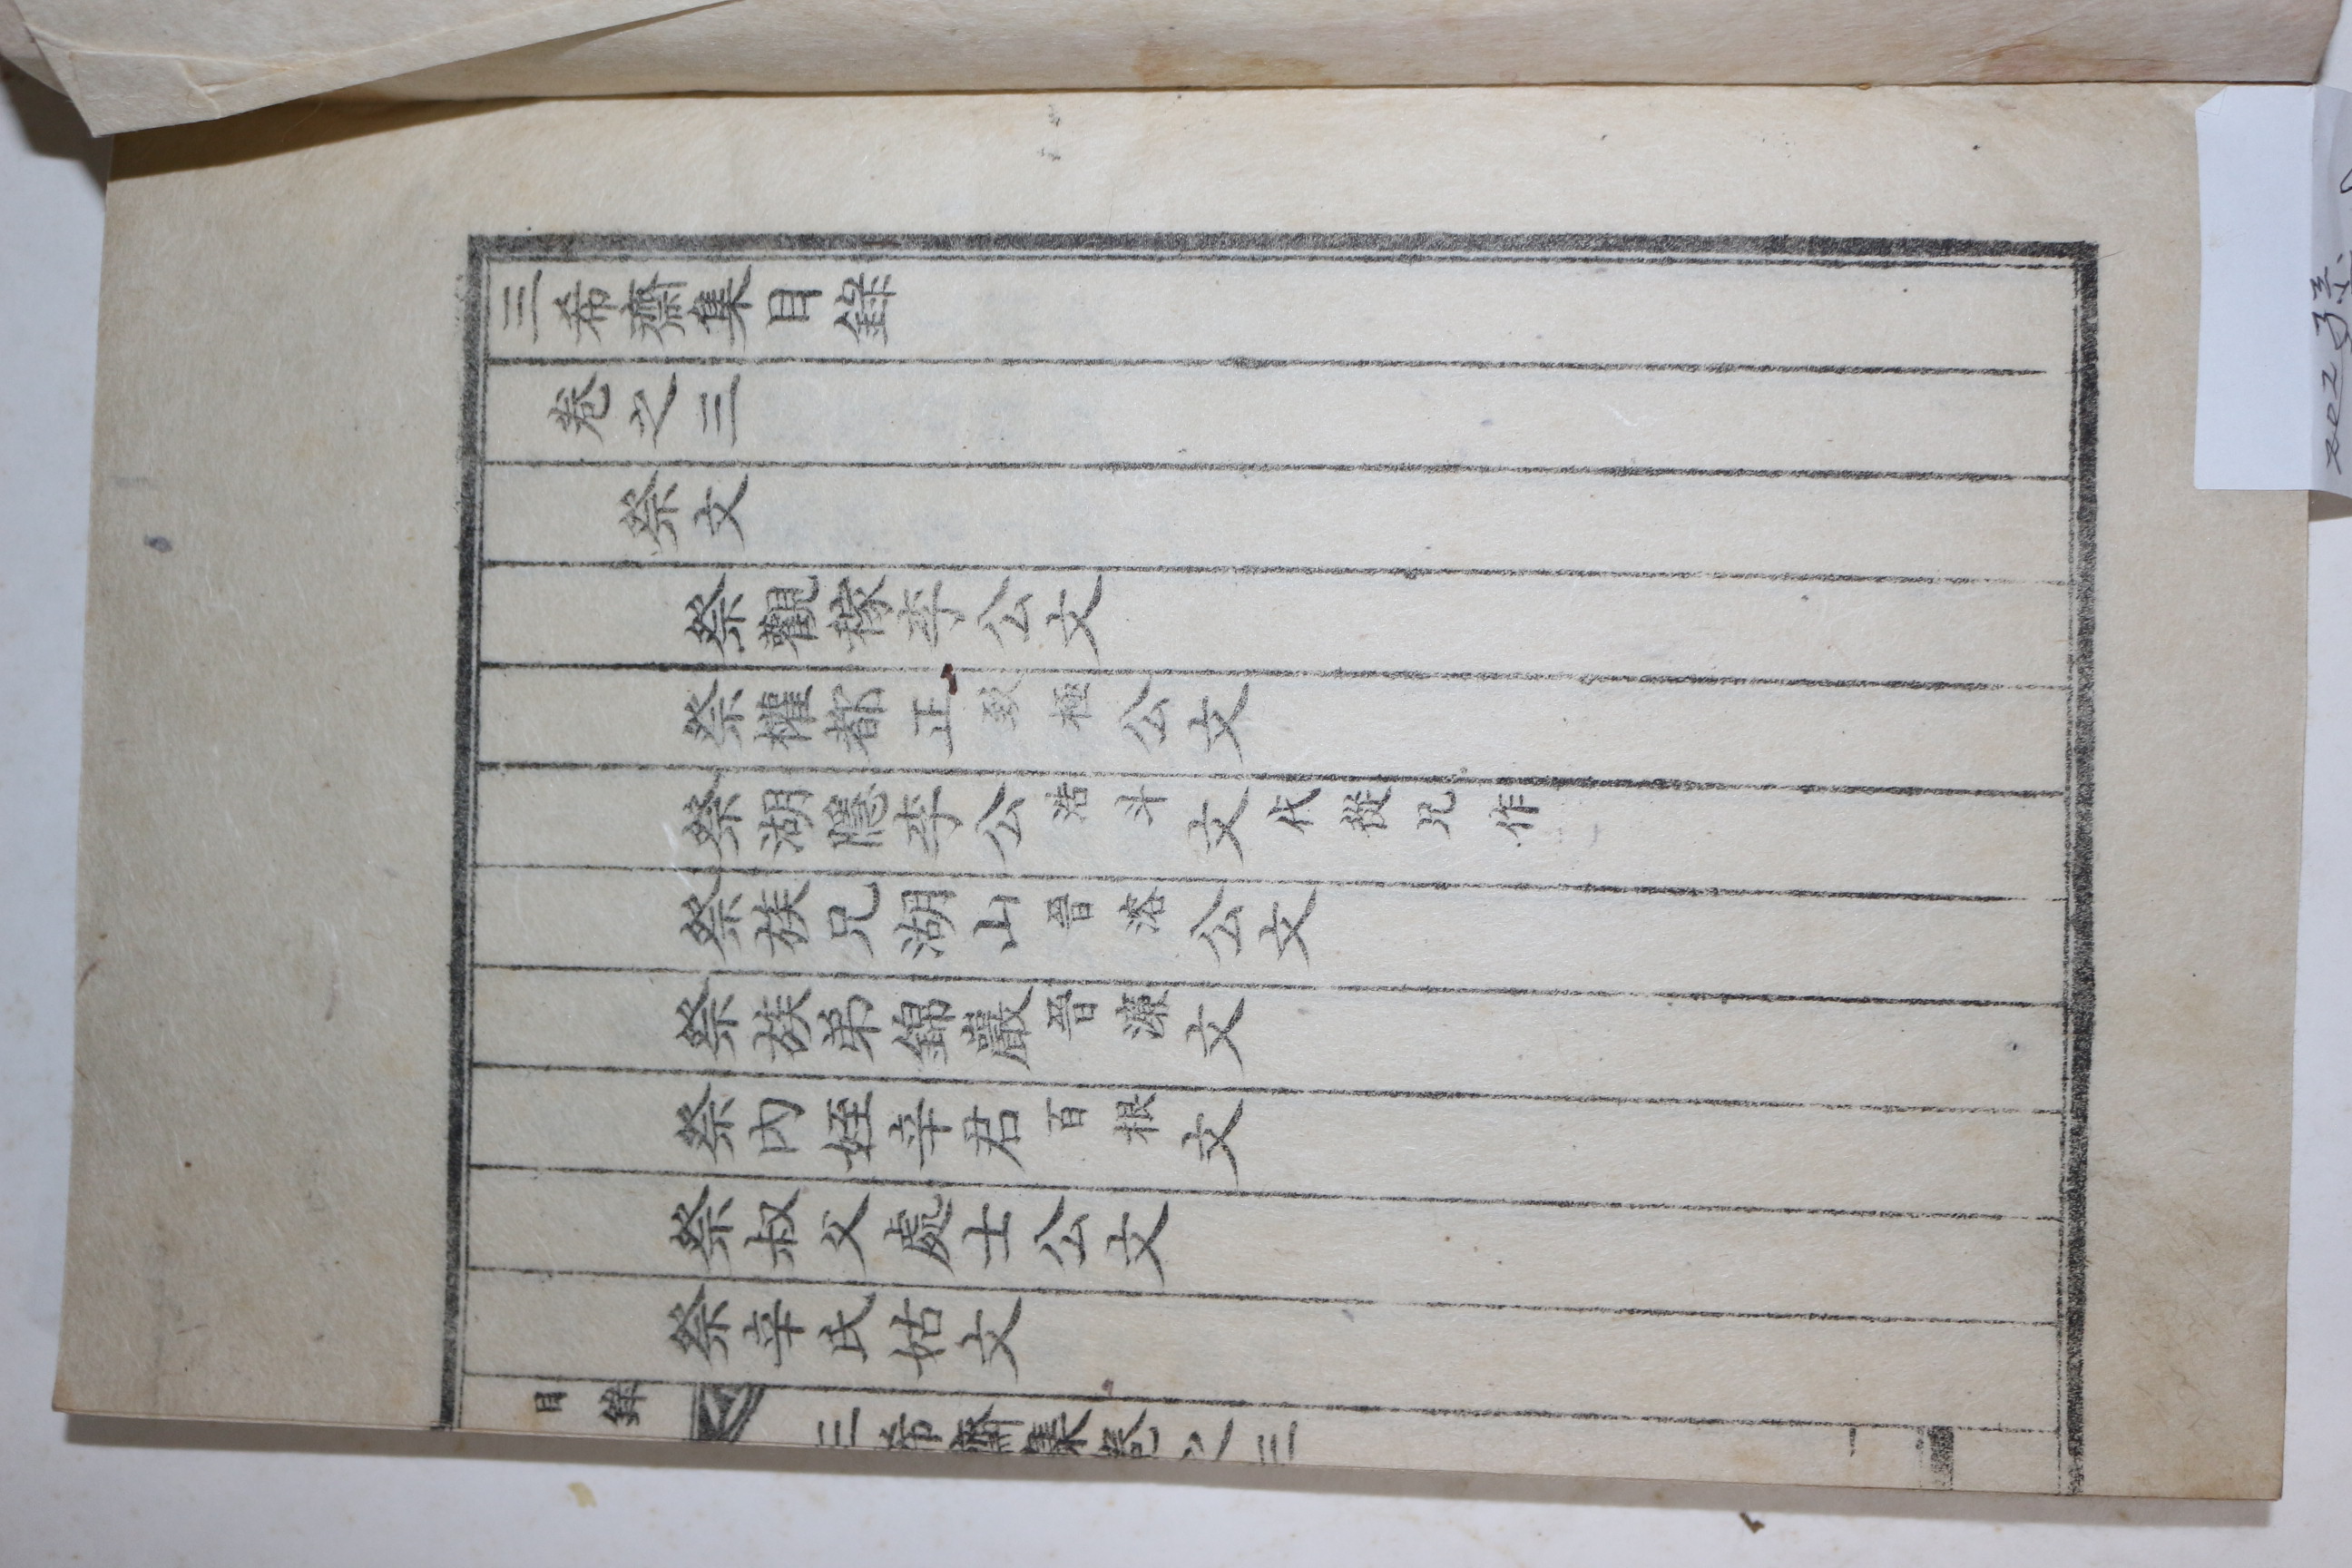 三希齋集目錄
卷之三
祭文
祭觀稼李公文
祭權都正致極公文
祭湖隱李公浩斗文代從兄作
祭族兄湖山晉溶公文
祭族弟錦巖晉濂文
祭內姪辛君百根文
祭叔父處士公文
祭辛氏姑文
目錄 三希齋集卷之三 一